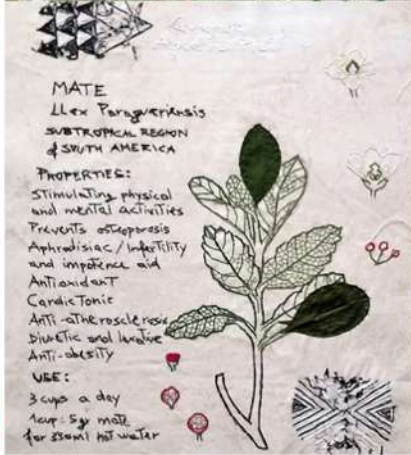 MATE
LLex Paragueriensis
SUBTROPICAL REGION
of SOUTH AMERICA
PROPERTIES:
Stimulating physical
and mental activities
Prevents osteoporosis
Aphrodisiac / Infertility
and impotence aid
Antioxidant
Cardic Tonic
Anti-atherosclerosis
Diuretic and laxative
Anti-obesity
USE:
3 cups a day
1cup: 5gr mate
for 350ml hot water